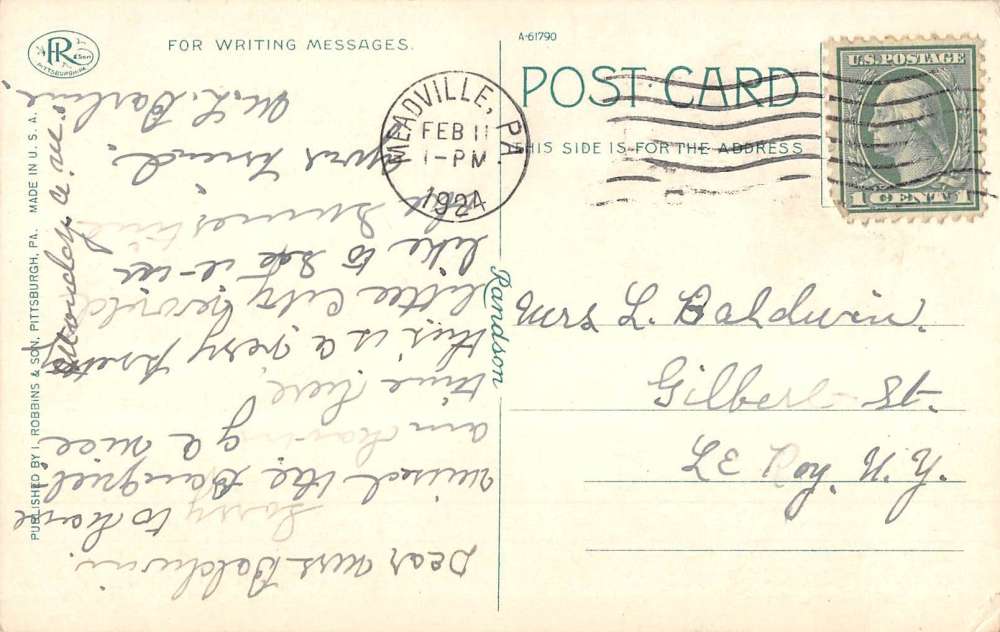 IR & Son
PITTSBURGH.PA.
FOR WRITING MESSAGES.
A-61790
POST CARD
THIS SIDE IS FOR THE ADDRESS
U.S. POSTAGE
1 CENT 1
MEADVILLE, PA.
FEB 11
1-PM
1924
Mrs L. Baldwin.
Gilbert St.
Le Roy, N. Y.
Randson
PUBLISHED BY I. ROBBINS & SON, PITTSBURGH, PA. MADE IN U. S. A.
Monday a.m.
Dear Mrs Baldwin.
Sorry to have
missed the Banquet.
am having a nice
time here
this is a very pretty
little City would
like to see
sometime
your Friend.
M. L.